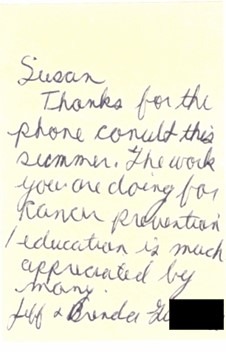 Susan
Thanks for the
phone consult this
summer. The work
you are doing for
cancer prevention
/education is much
appreciated by
many.
Jeff & Brenda